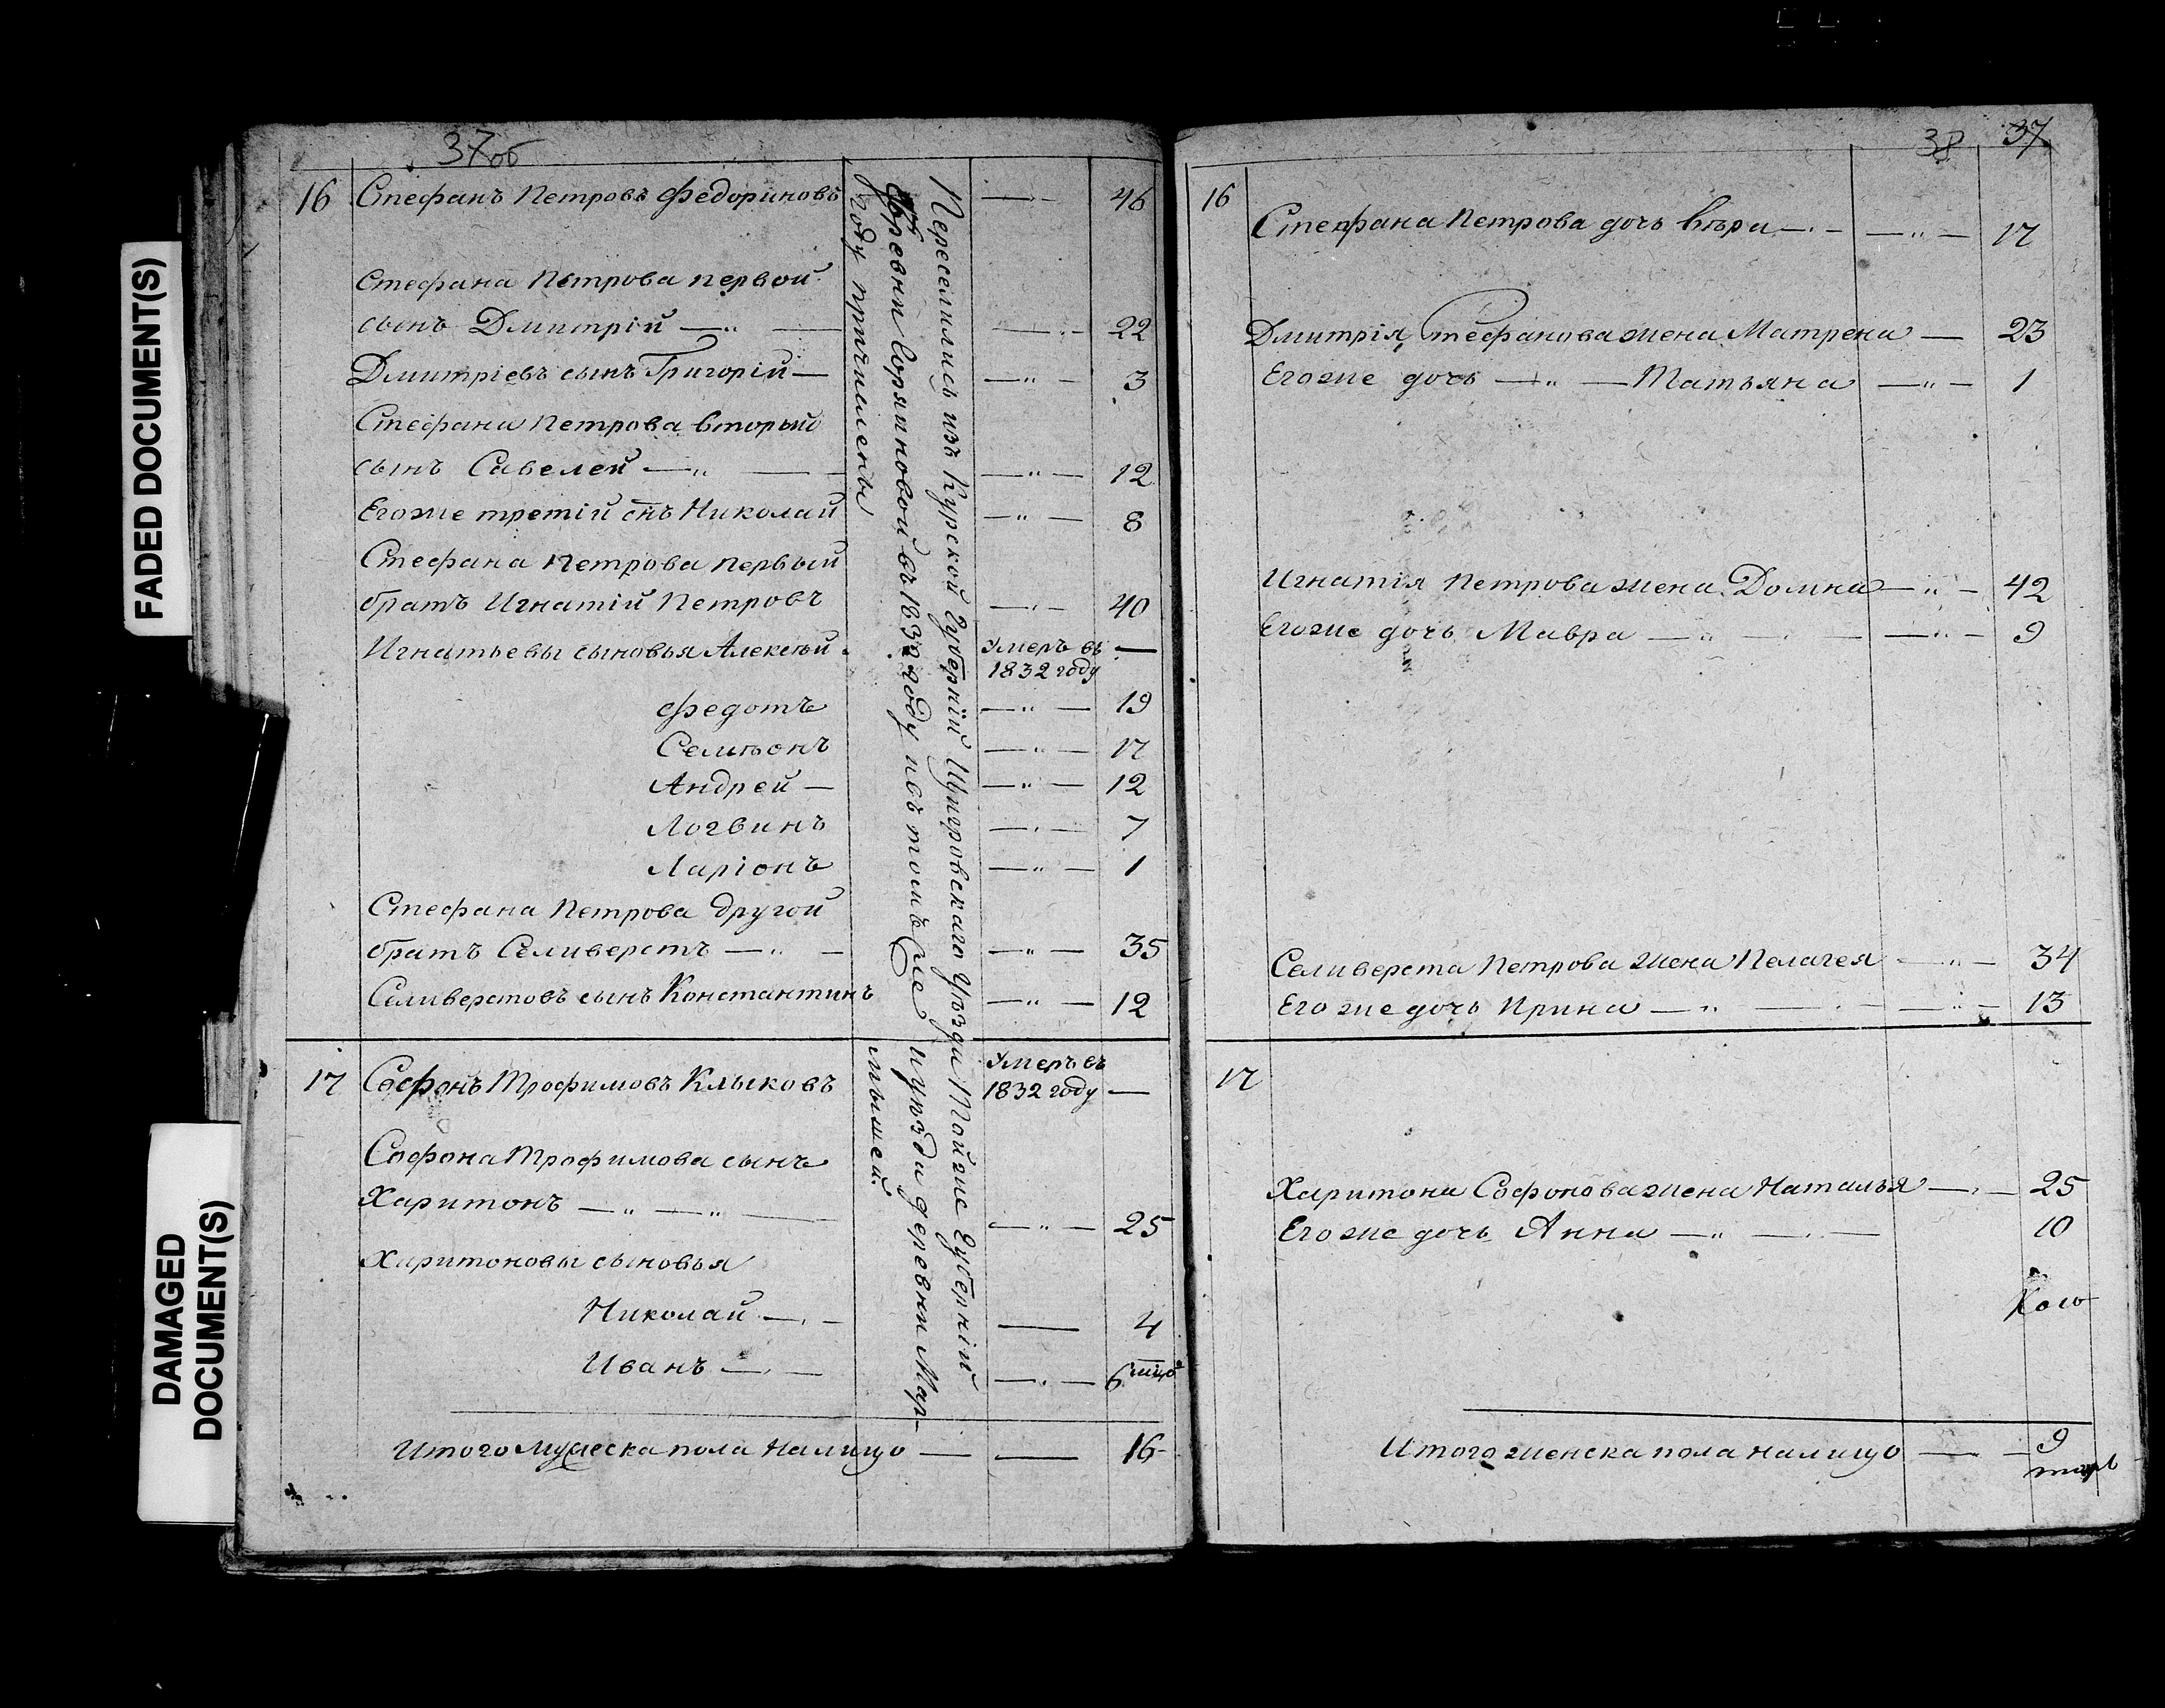 FADED DOCUMENT(S)
DAMAGED
DOCUMENT(S)
37об
16 Стефанъ Петровъ Федориновъ — 46
Стефана Петрова первой
сынъ Дмитрій — „ — — „ — 22
Дмитріевъ сынъ Григорій — — „ — 3
Стефана Петрова вторый
сынъ Савелей — „ — — „ — 12
Егоже третій снъ Николай — „ — 8
Стефана Петрова первый
братъ Игнатій Петровъ — „ — 40
Игнатьевы сыновья Алексѣй Умеръ въ —
1832 году
Федотъ — „ — 19
Семіонъ — „ — 17
Андрей — — „ — 12
Логвинъ — „ — 7
Ларіонъ — „ — 1
Стефана Петрова другой
братъ Селиверстъ — „ — — „ — 35
Селиверстовъ сынъ Константинъ — „ — 12
Переселились изъ Курской Губерніи Щигровскаго Уѣзда
деревни въ 1832 году и въ томъ же
году причислены
17 Софонъ Трофимовъ Клыковъ Умеръ въ
1832 году —
Софона Трофимова сынъ
Харитонъ — „ — „ — — „ — 25
Харитоновы сыновья
Николай — „ — — 4
Иванъ — „ — — „ — 6
Тойже Губерніи
и уѣзда деревни Мар-
мыжей.
Итого мужеска пола налицо — — 16
38 37
16
Стефана Петрова дочь Вѣра — „ — — „ — 17
Дмитрія Стефанова жена Матрена — 23
Егоже дочь — „ — Татьяна — „ — 1
Игнатія Петрова жена Домна — „ — 42
Егоже дочь Мавра — „ — — „ — 9
Селиверста Петрова жена Пелагея — „ — 34
Егоже дочь Ирина — „ — — „ — 13
17
Харитона Софонова жена Наталья — „ — 25
Егоже дочь Анна — „ — 10
Итого женска пола налицо — — 9